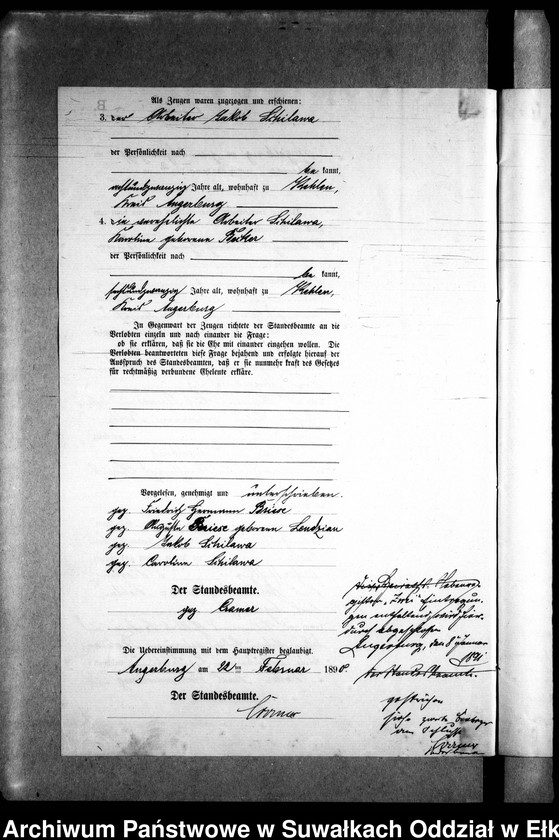 Als Zeugen waren zugezogen und erschienen:
3. der Arbeiter Jakob Schilawa
der Persönlichkeit nach
be kannt,
achtundzwanzig Jahre alt, wohnhaft zu Kehlen,
Kreis Angerburg
4. die verehelichte Arbeiter Schilawa,
Karoline geborene
der Persönlichkeit nach
be kannt,
sechsundzwanzig Jahre alt, wohnhaft zu Kehlen,
Kreis Angerburg
In Gegenwart der Zeugen richtete der Standesbeamte an die
Verlobten einzeln und nach einander die Frage:
ob sie erklären, daß sie die Ehe mit einander eingehen wollen. Die
Verlobten beantworteten diese Frage bejahend und erfolgte hierauf der
Ausspruch des Standesbeamten, daß er sie nunmehr kraft des Gesetzes
für rechtmäßig verbundene Eheleute erkläre.
Vorgelesen, genehmigt und unterschrieben.
gez. Friedrich Hermann Briese
gez. Auguste Briese geborene Lendzian
gez. Jakob Schilawa
gez. Caroline Schilawa
Der Standesbeamte.
gez. Cramer
Die Uebereinstimmung mit dem Hauptregister beglaubigt.
Angerburg am 22ten Februar 1890
Der Standesbeamte.
Cramer
Neben-
register, zwei Eintragun-
gen enthaltend, wird hier-
durch abgeschlossen
Angerburg, den Januar
1891
Der Standesbeamte.
gestrichen
siehe
am Schlusse
Cramer
Archiwum Państwowe w Suwałkach Oddział w Ełk